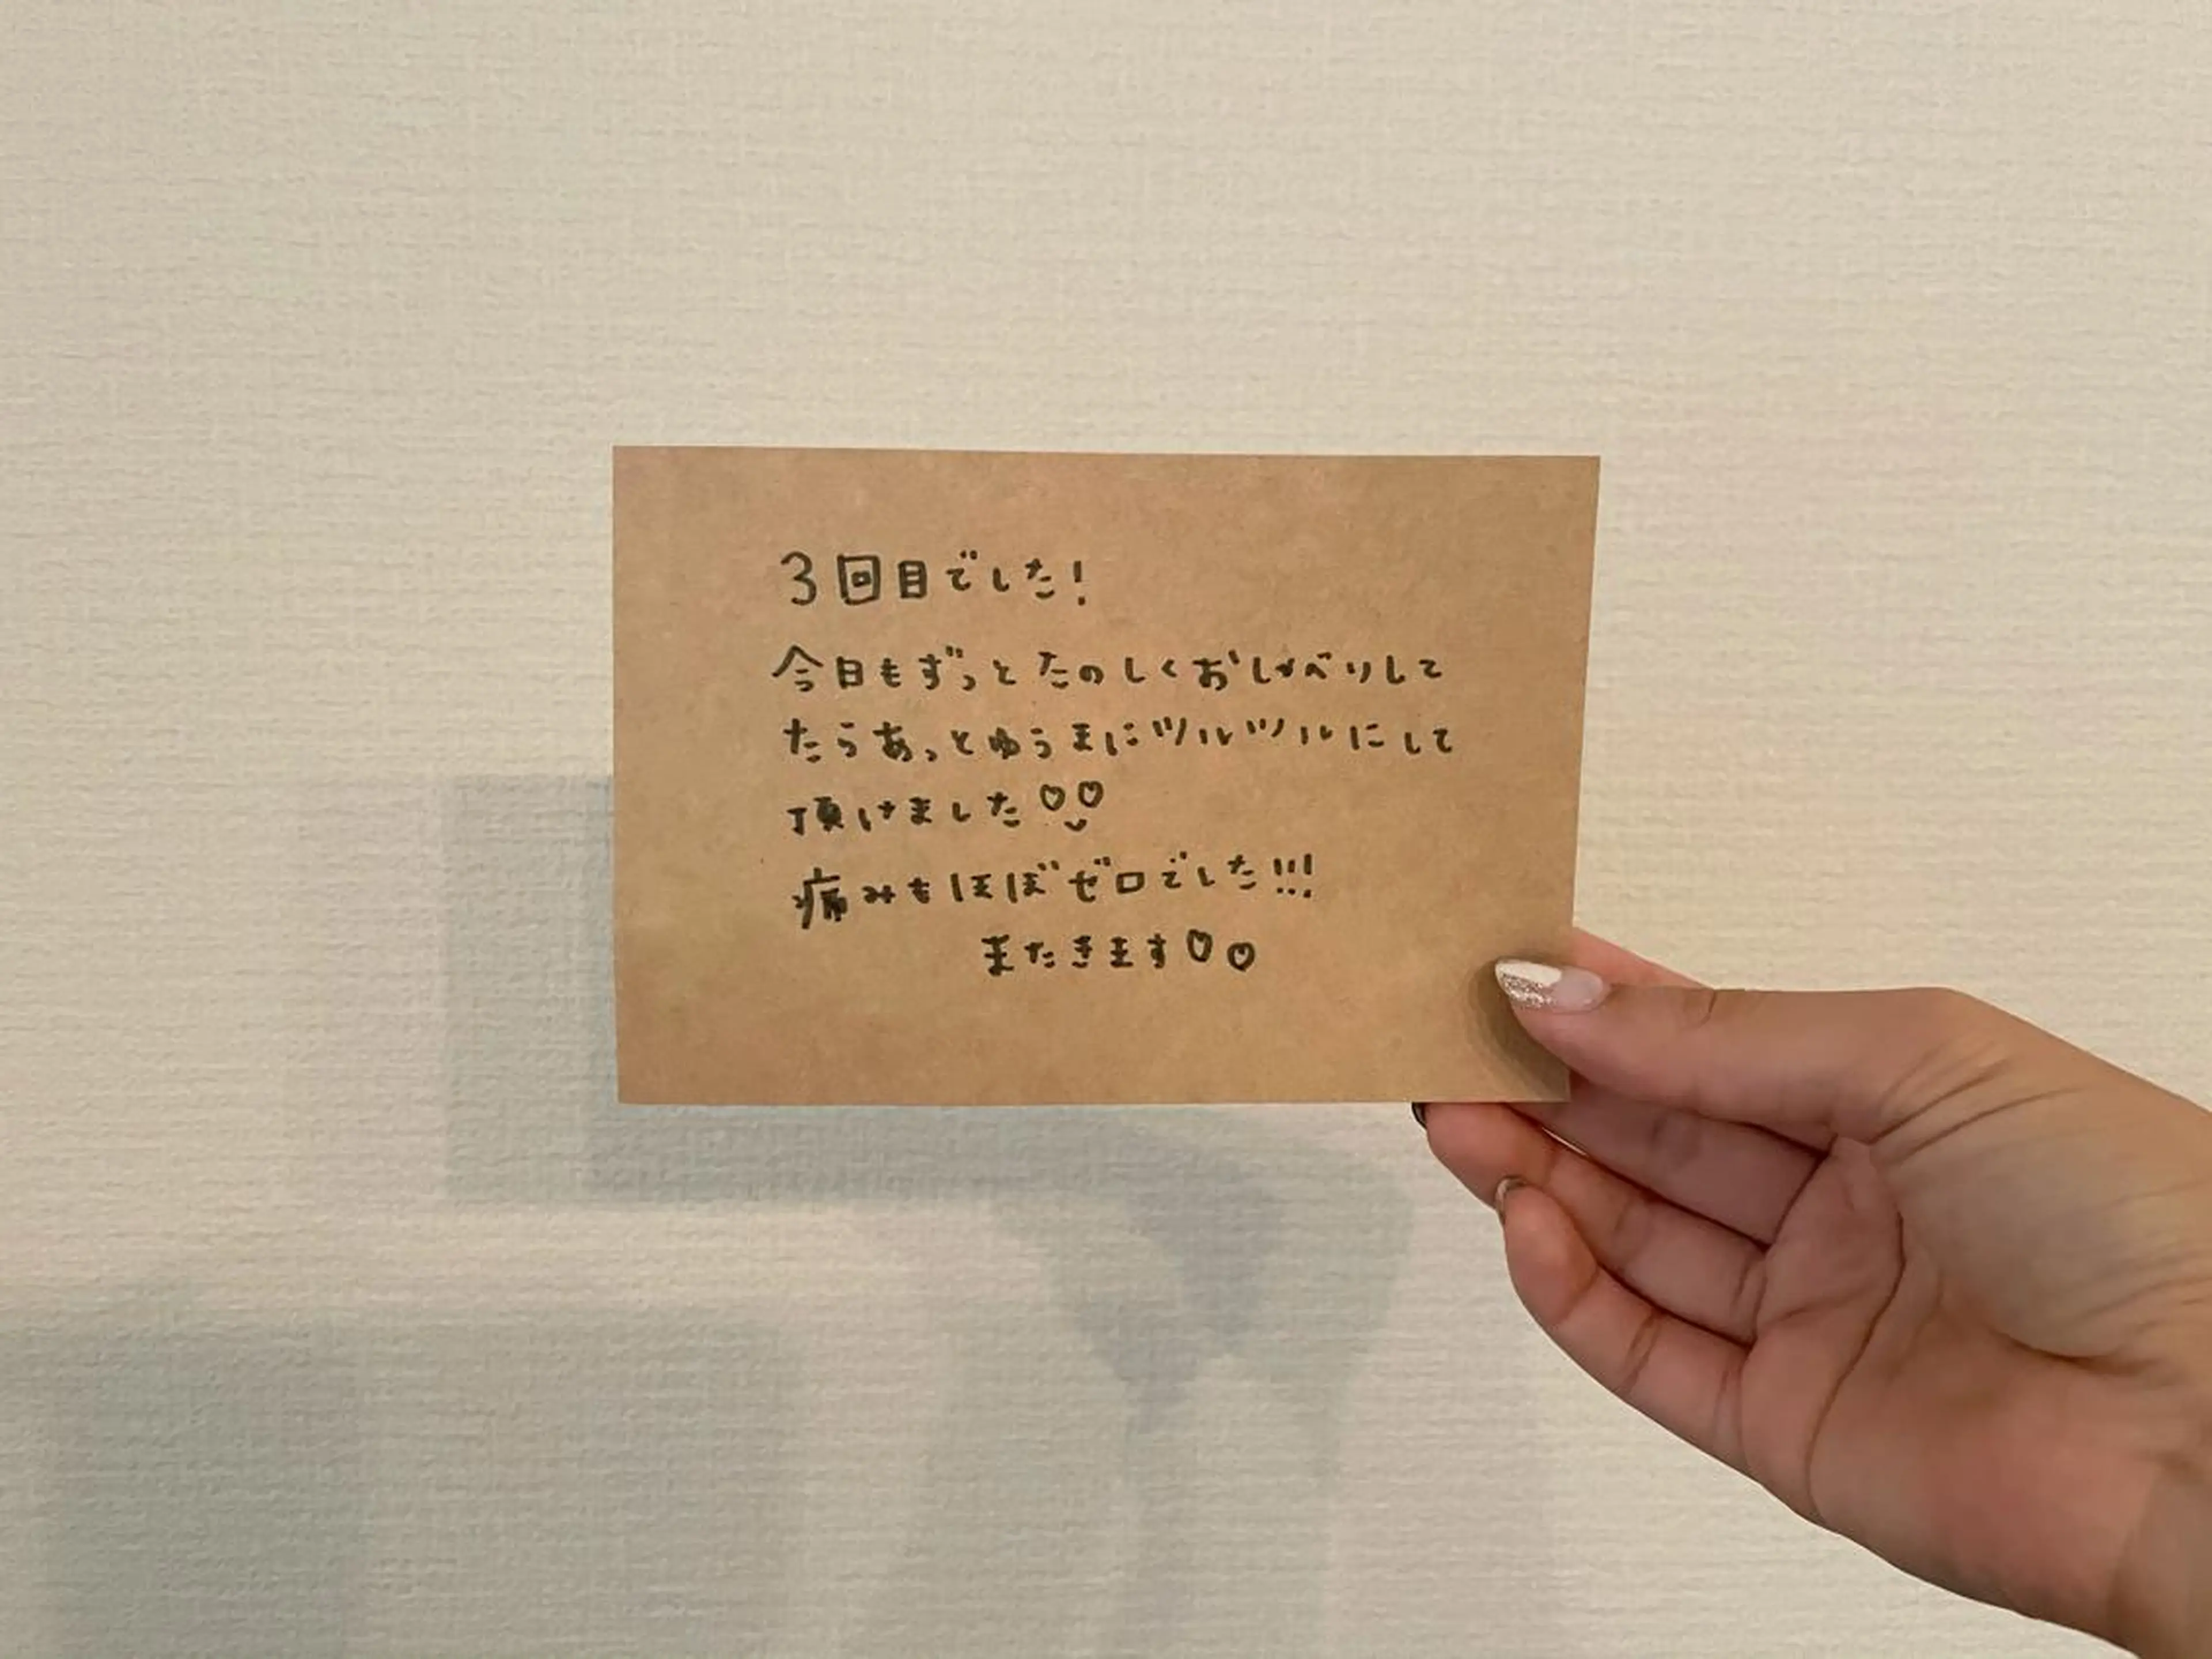 3回目でした!
今日もずっとたのしくおしゃべりして
たらあっとゆうまにツルツルにして
頂けました♡♡
痛みもほぼゼロでした!!!
またきます♡♡